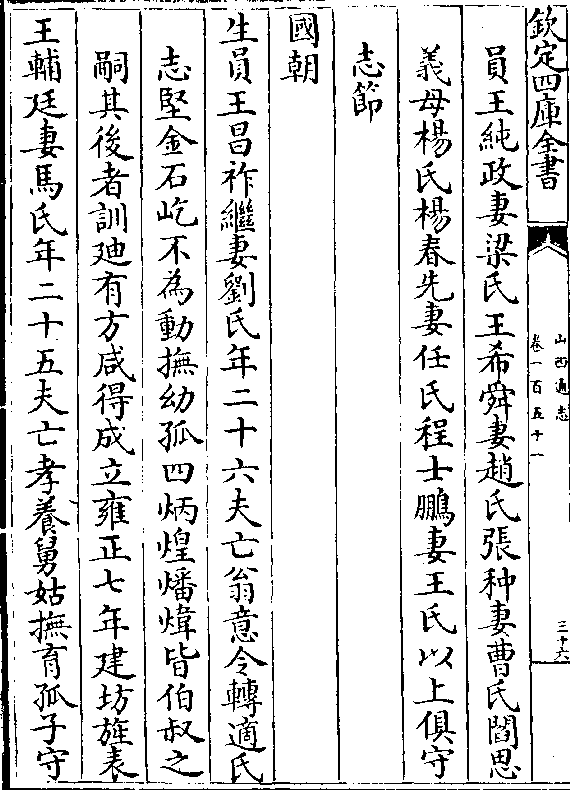 欽定四庫全書
山西通志
卷一百五十一
三十六
員王純政妻梁氏王希舜妻趙氏張种妻曹氏閻思
義母楊氏楊春先妻任氏程士鵬妻王氏以上俱守
志節
國朝
生員王昌祚繼妻劉氏年二十六夫亡翁意令轉適氏
志堅金石屹不為動撫幼孤四炳煌燔煒皆伯叔之
嗣其後者訓廸有方咸得成立雍正七年建坊旌表
王輔廷妻馬氏年二十五夫亡孝養舅姑撫育孤子守